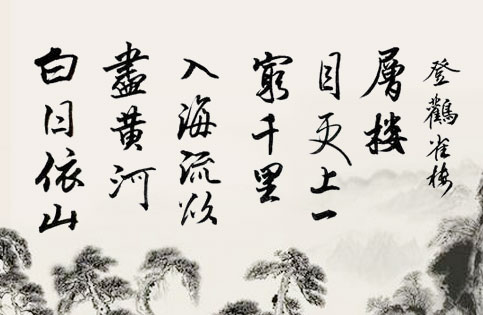 白日依山
盡黄河
入海流欲
窮千里
目更上一
層楼
登鸛雀楼